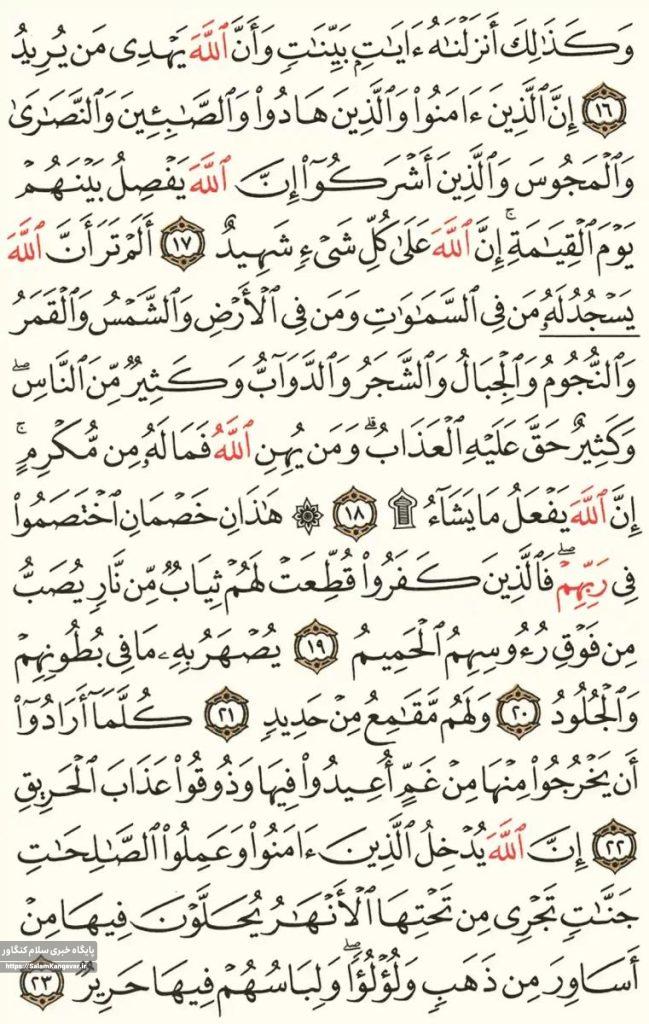 وَكَذَٰلِكَ أَنزَلْنَٰهُ ءَايَٰتٍۭ بَيِّنَٰتٍ وَأَنَّ ٱللَّهَ يَهْدِى مَن يُرِيدُ
۝١٦ إِنَّ ٱلَّذِينَ ءَامَنُوا۟ وَٱلَّذِينَ هَادُوا۟ وَٱلصَّٰبِـِٔينَ وَٱلنَّصَٰرَىٰ
وَٱلْمَجُوسَ وَٱلَّذِينَ أَشْرَكُوٓا۟ إِنَّ ٱللَّهَ يَفْصِلُ بَيْنَهُمْ
يَوْمَ ٱلْقِيَٰمَةِ ۚ إِنَّ ٱللَّهَ عَلَىٰ كُلِّ شَىْءٍ شَهِيدٌ ۝١٧ أَلَمْ تَرَ أَنَّ ٱللَّهَ
يَسْجُدُ لَهُۥ مَن فِى ٱلسَّمَٰوَٰتِ وَمَن فِى ٱلْأَرْضِ وَٱلشَّمْسُ وَٱلْقَمَرُ
وَٱلنُّجُومُ وَٱلْجِبَالُ وَٱلشَّجَرُ وَٱلدَّوَآبُّ وَكَثِيرٌ مِّنَ ٱلنَّاسِ ۖ
وَكَثِيرٌ حَقَّ عَلَيْهِ ٱلْعَذَابُ ۗ وَمَن يُهِنِ ٱللَّهُ فَمَا لَهُۥ مِن مُّكْرِمٍ ۚ
إِنَّ ٱللَّهَ يَفْعَلُ مَا يَشَآءُ ۩ ۝١٨ ۞ هَٰذَانِ خَصْمَانِ ٱخْتَصَمُوا۟
فِى رَبِّهِمْ ۖ فَٱلَّذِينَ كَفَرُوا۟ قُطِّعَتْ لَهُمْ ثِيَابٌ مِّن نَّارٍ يُصَبُّ
مِن فَوْقِ رُءُوسِهِمُ ٱلْحَمِيمُ ۝١٩ يُصْهَرُ بِهِۦ مَا فِى بُطُونِهِمْ
وَٱلْجُلُودُ ۝٢٠ وَلَهُم مَّقَٰمِعُ مِنْ حَدِيدٍ ۝٢١ كُلَّمَآ أَرَادُوٓا۟
أَن يَخْرُجُوا۟ مِنْهَا مِنْ غَمٍّ أُعِيدُوا۟ فِيهَا وَذُوقُوا۟ عَذَابَ ٱلْحَرِيقِ
۝٢٢ إِنَّ ٱللَّهَ يُدْخِلُ ٱلَّذِينَ ءَامَنُوا۟ وَعَمِلُوا۟ ٱلصَّٰلِحَٰتِ
جَنَّٰتٍ تَجْرِى مِن تَحْتِهَا ٱلْأَنْهَٰرُ يُحَلَّوْنَ فِيهَا مِنْ
أَسَاوِرَ مِن ذَهَبٍ وَلُؤْلُؤًا ۖ وَلِبَاسُهُمْ فِيهَا حَرِيرٌ ۝٢٣
پایگاه خبری سلام کنگاور
https://SalamKangavar.ir